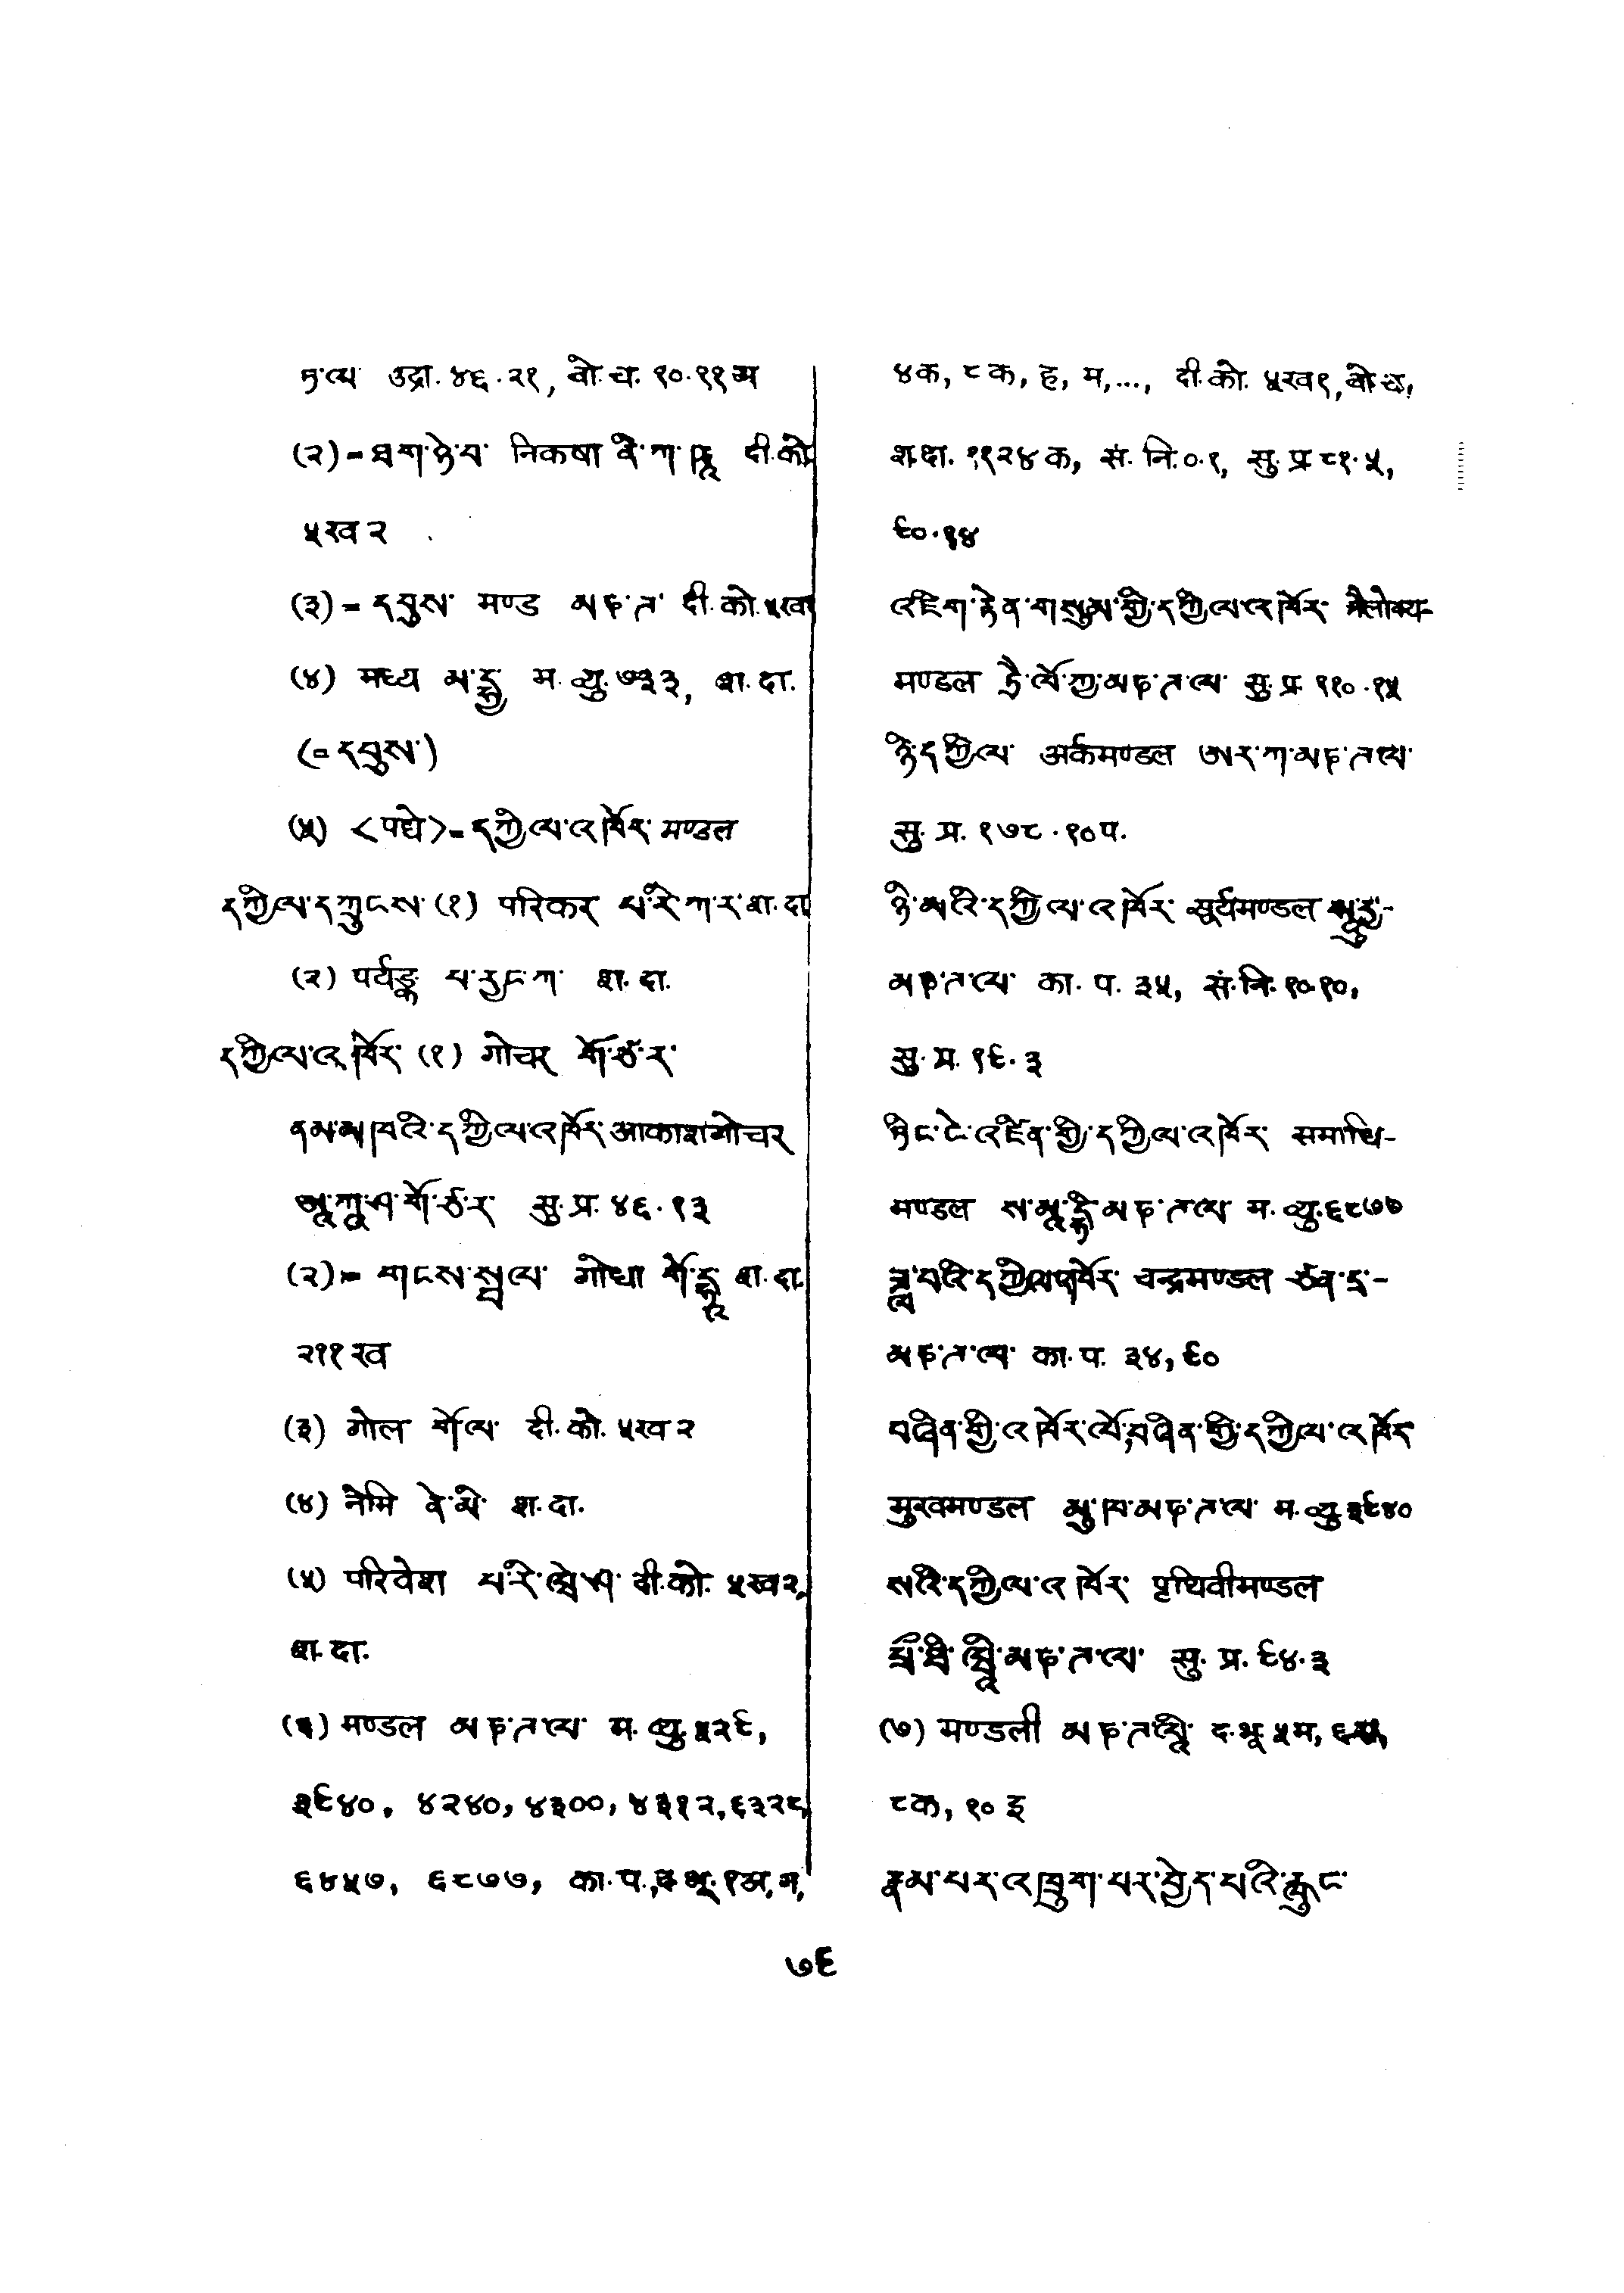 ཏ་ལ་ उद्रा. ४६.२१, बो.च. १०.११अ
(२)=ཐག་ཉེ་བ་ निकषा ནི་ཀ་ཥཱ दी.को.
५ख२
(३)=དབུས་ मण्ड མཎ་ཌ་ दी.को.५ख१
(४) मध्य མ་དྷྱ म.व्यु.७३३, श.दा.
(=དབུས་)
(५) <पद्ये>=དཀྱིལ་འཁོར་ मण्डल
དཀྱིལ་དཀྲུངས་ (१) परिकर པ་རི་ཀ་ར་ श.दा.
(२) पर्यङ्क པ་རྱང་ཀ་ श.दा.
དཀྱིལ་འཁོར་ (१) गोचर གོ་ཙ་ར་
ནམ་མཁའི་དཀྱིལ་འཁོར་ आकाशगोचर
ཨཱ་ཀཱ་ཤ་གོ་ཙ་ར་ सु.प्र.४६.१३
(२)= གངས་སྦལ་ गोधा གོ་དྷཱ श.दा.
२११ख
(३) गोल གོ་ལ་ दी.को.५ख२
(४) नेमि ནེ་མི་ श.दा.
(५) परिवेश པ་རི་ཝེ་ཤ་ दी.को. ५ख२,
श.दा.
(६) मण्डल མཎ་ཌ་ལ་ म.व्यु.५२९,
३९४०, ४२४०, ४३००, ४३१२, ६३२८,
६४५७, ६८७७, का.प., द.भू.१अ, ग,
४क, ८क, ह, म,..., दी.को. ५ख१, बो.च.,
श.दा. ११२४क, सं.नि.०.१, सु.प्र.८१.५,
९०.१४
འཇིག་རྟེན་གསུམ་གྱི་དཀྱིལ་འཁོར་ त्रैलोक्य-
मण्डल ཏྲཻ་ལོ་ཀྱ་མཎ་ཌ་ལ་ सु.प्र. ११०.१५
ཉི་དཀྱིལ་ अर्कमण्डल ཨར་ཀ་མཎ་ཌ་ལ་
सु.प्र. १७८.१०प.
ཉི་མའི་དཀྱིལ་འཁོར་ सूर्यमण्डल སཱུརྱ-
མཎ་ཌ་ལ་ का.प. ३५, सं.नि.१०.१०,
सु.प्र. १९.३
ཏིང་ངེ་འཛིན་གྱི་དཀྱིལ་འཁོར་ समाधि-
मण्डल ས་མཱ་དྷི་མཎ་ཌ་ལ་ म.व्यु.६८७७
ཟླ་བའི་དཀྱིལ་འཁོར་ चन्द्रमण्डल ཙན་དྲ་-
མཎ་ཌ་ལ་ का.प. ३४, ९०
བཞིན་གྱི་འཁོར་ལོ, བཞིན་གྱི་དཀྱིལ་འཁོར་
मुखमण्डल མུ་ཁ་མཎ་ཌ་ལ་ म.व्यु.३९४०
སའི་དཀྱིལ་འཁོར་ पृथिवीमण्डल
པྲྀ་ཐི་ཝཱི་མཎ་ཌ་ལ་ सु.प्र.९४.३
(७) मण्डली མཎ་ཌ་ལཱི་ द.भू.५म,
८क, १० इ
རྣམ་པར་འཁྲུག་པར་བྱེད་པའི་རླུང་
७९